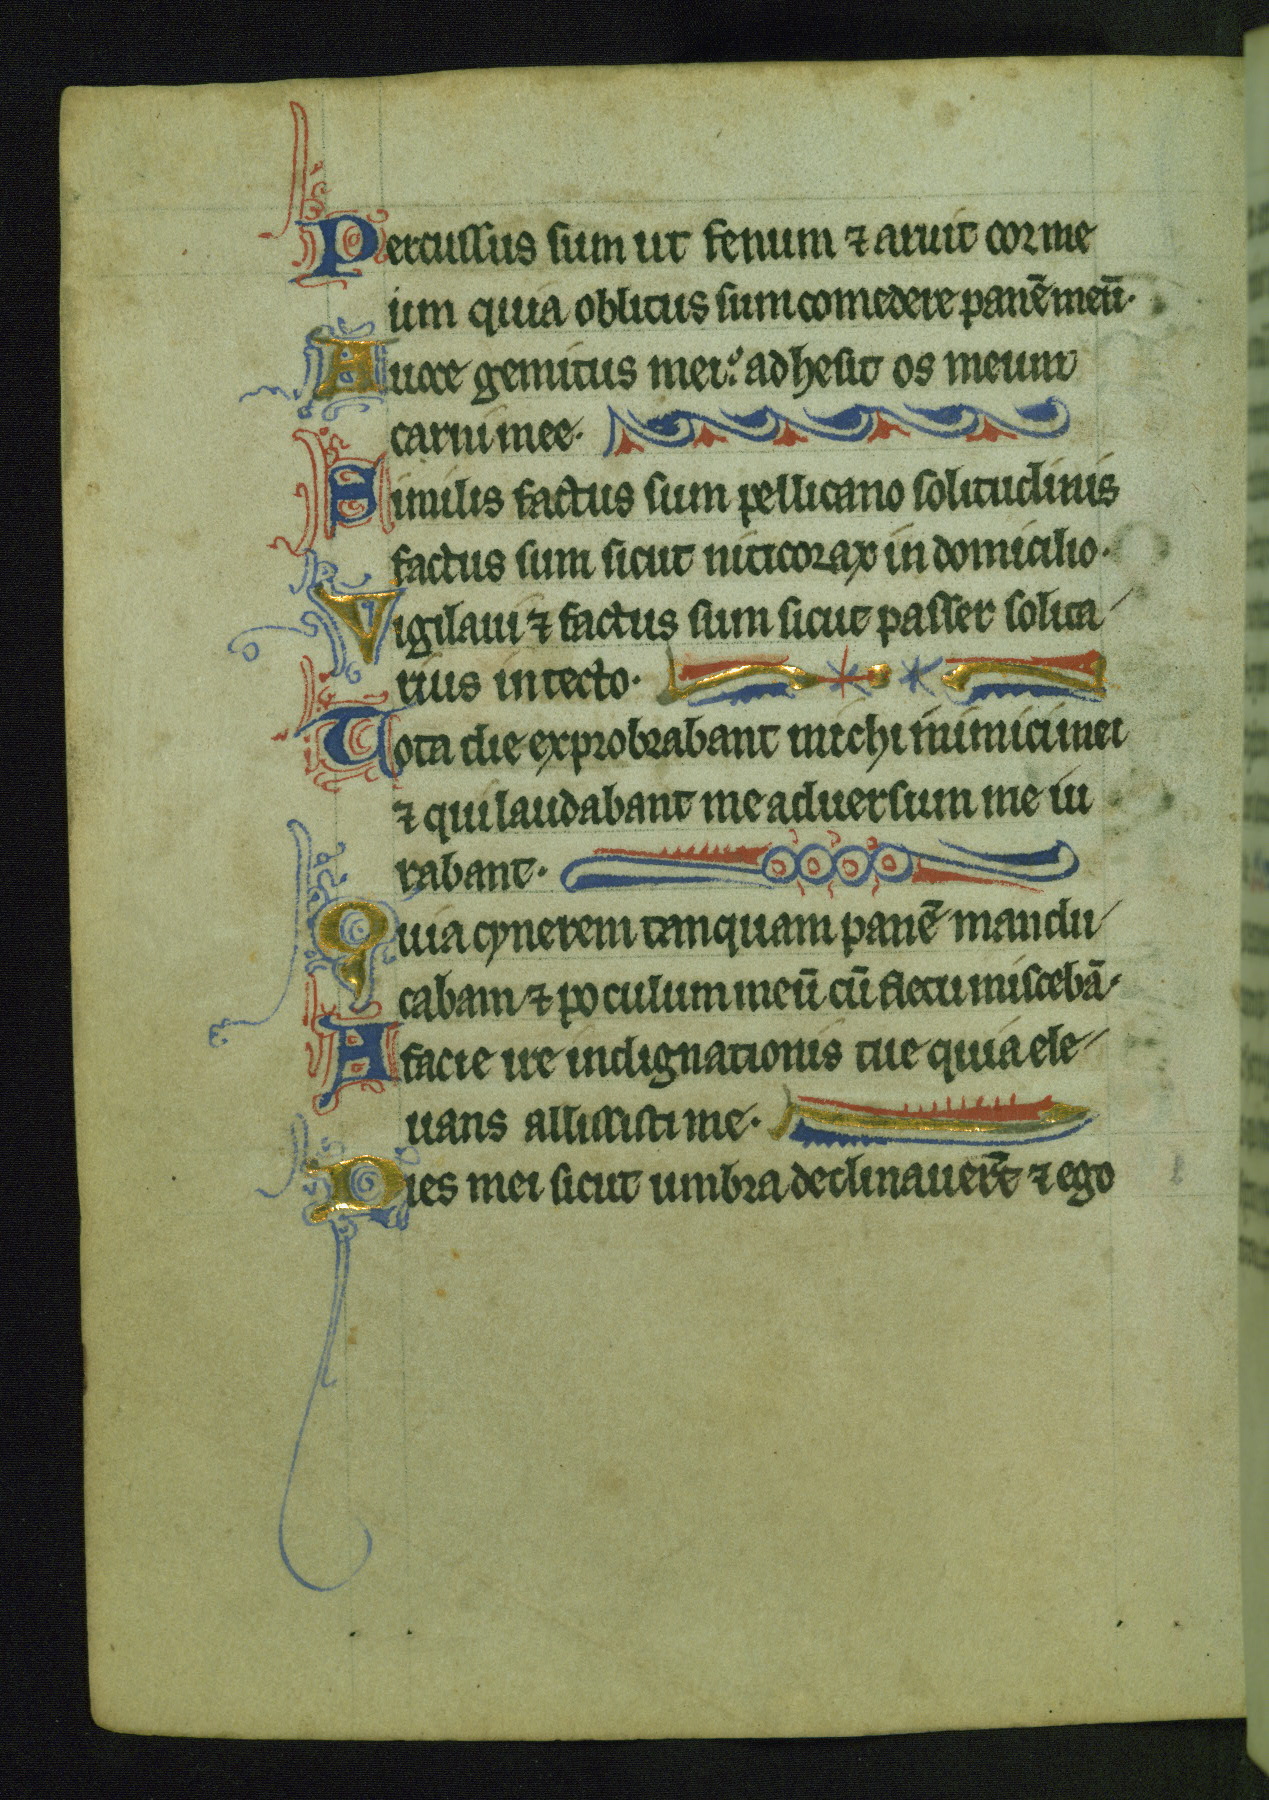 Percussus sum ut fenum ⁊ aruit cor me
um quia oblitus sum comedere panē meū.
A uoce gemitus mei: adhesit os meum
carni mee.
Similis factus sum pellicano solitudinis
factus sum sicut niticorax in domicilio.
Vigilaui ⁊ factus sum sicut passer solita
rius in tecto.
Tota die exprobrabant michi inimici mei
⁊ qui laudabant me aduersum me iu
rabant.
Quia cynerem tanquam panē mandu
cabam ⁊ poculum meū cū fletu miscebā.
A facie ire indignationis tue quia ele
uans allisisti me.
Dies mei sicut umbra declinauerēt ⁊ ego